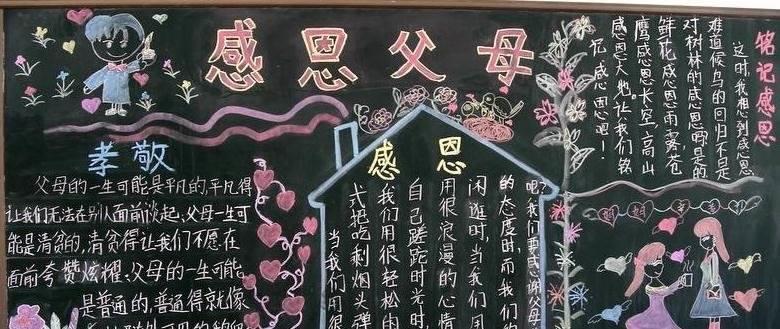 感恩父母
孝敬
父母的一生可能是平凡的,平凡得
让我们无法在别人面前谈起,父母一生可
能是清贫的,清贫得让我们不愿在
面前夸赞炫耀.父母的一生可能
是普通的,普通得就像
感恩
吧?我们要感谢父母
的态度时,而我们的
闲逛时,当我们用
用很浪漫的心情
自己蹉跎时光时,
我们用很轻松
式把吃剩烟头弹
当我们用很
铭记感恩
这时,我想到感恩
难道候鸟的回归不是
对树林的感恩嘛?是的
鲜花感恩雨露,苍
鹰感恩长空,高山
感恩大地.让我们铭
记感恩吧!